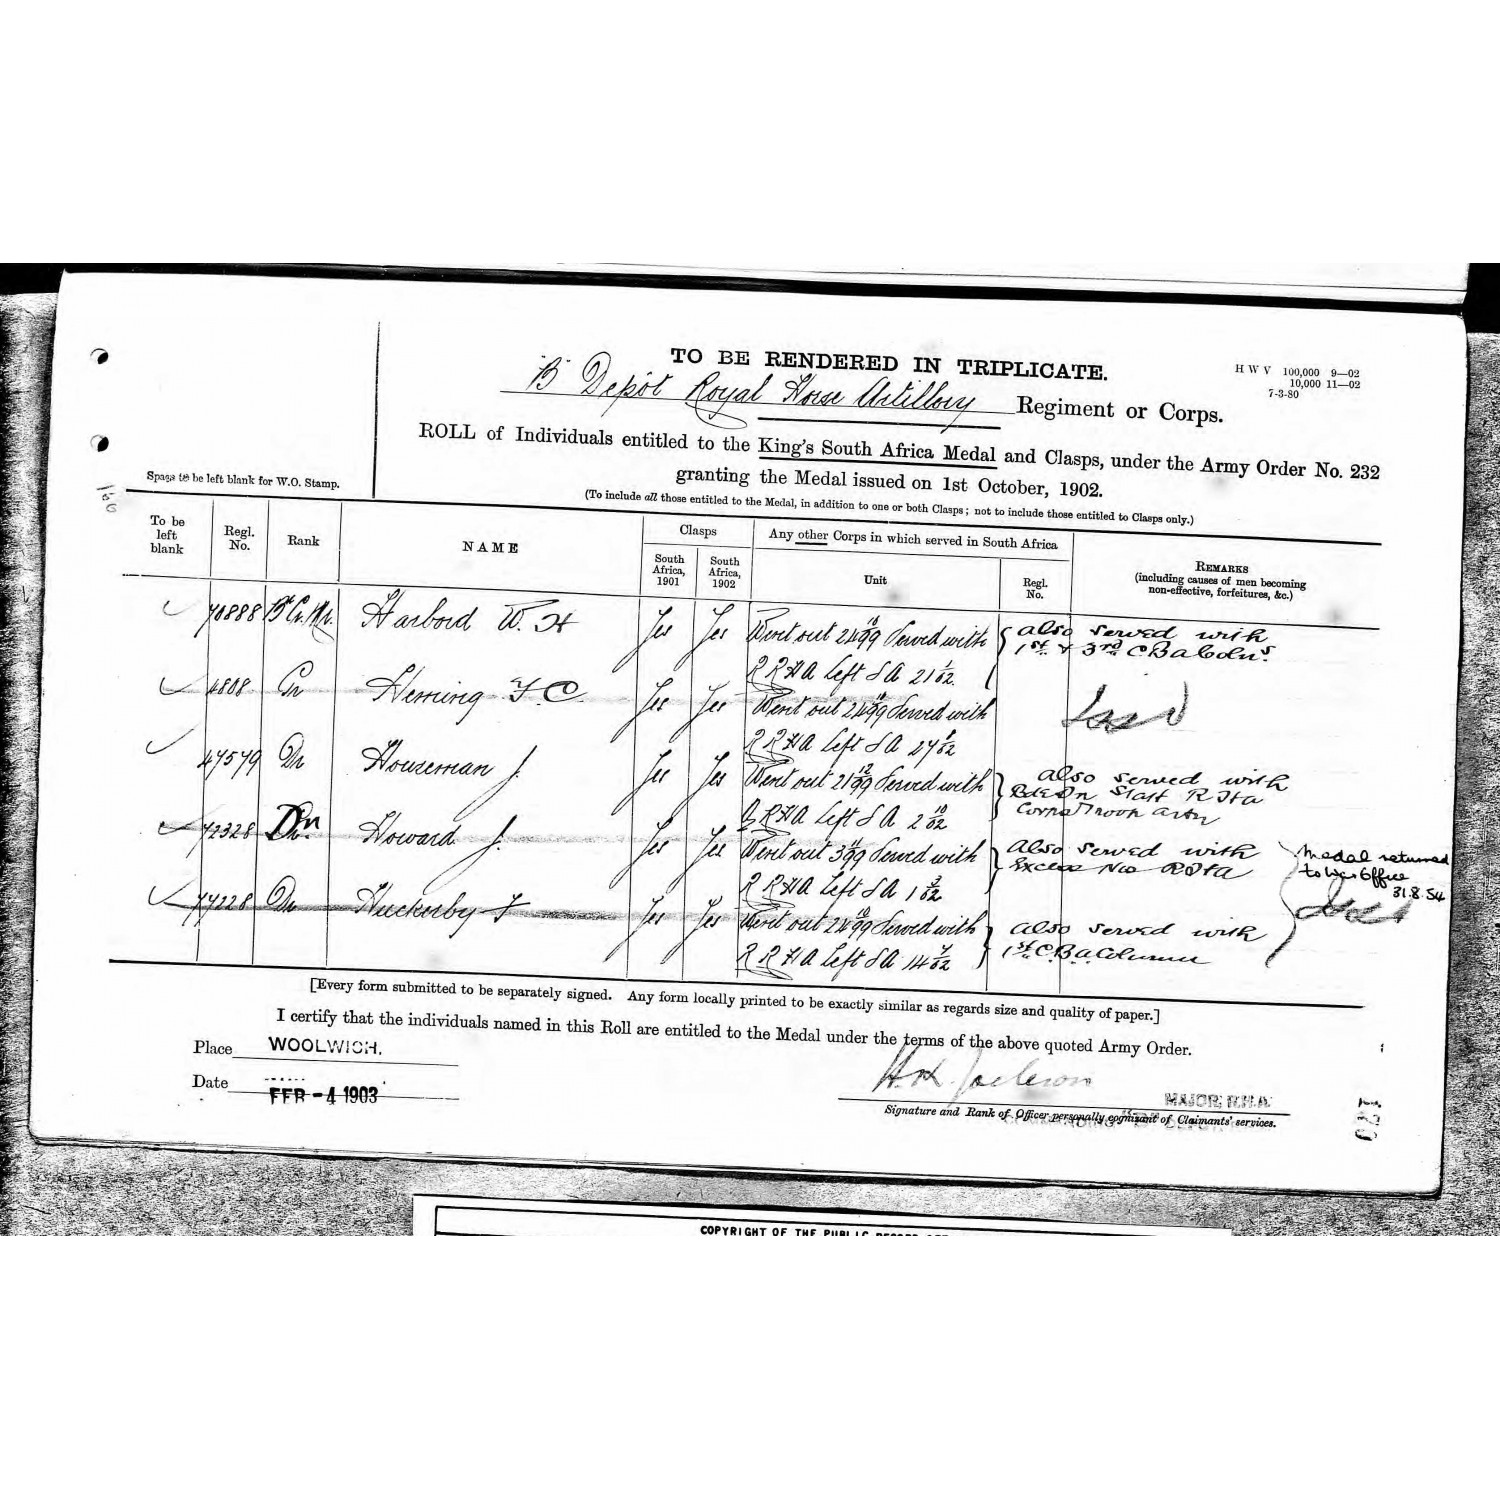 TO BE RENDERED IN TRIPLICATE.
H W V 100,000 9—02
10,000 11—02
7-3-80
"B" Depôt Royal Horse Artillery Regiment or Corps.
ROLL of Individuals entitled to the King's South Africa Medal and Clasps, under the Army Order No. 232
granting the Medal issued on 1st October, 1902.
(To include all those entitled to the Medal, in addition to one or both Clasps; not to include those entitled to Clasps only.)
Space to be left blank for W.O. Stamp.
166
To be left blank
Regl. No.
Rank
NAME
Clasps
South Africa, 1901
South Africa, 1902
Any other Corps in which served in South Africa
Unit
Regl. No.
REMARKS
(including causes of men becoming
non-effective, forfeitures, &c.)
70888 Harbord W. H Yes Yes Went out 24 10/99 Served with
R RHA Left SA 21 1/02
also served with
1st & 3rd C B a Colns.
4808 Gr Herring F. C. Yes Yes Went out 24 10/99 Served with
R RHA Left SA 27
47579 Dr Houseman J. Yes Yes Went out 21 12/99 Served with
Q RHA Left SA 2 10/02
also served with
Bde Dn Staff RHA
Corps Troop arty
72328 Dr Howard J. Yes Yes Went out 3 11/99 Served with
R RHA Left SA 1
also served with
Excess Nos RHA
77228 Dr Huckerby F Yes Yes Went out 24 10/99 Served with
R RHA Left SA 14
also served with
1st C.B.a Column
Medal returned
to War Office
31.8.54
[Every form submitted to be separately signed. Any form locally printed to be exactly similar as regards size and quality of paper.]
I certify that the individuals named in this Roll are entitled to the Medal under the terms of the above quoted Army Order.
Place WOOLWICH.
Date FEB -4 1903
Jackson
MAJOR, R.H.A.
Signature and Rank of Officer personally cognizant of Claimants' services.
COMMANDING
170
COPYRIGHT OF THE PUBLIC RECORD